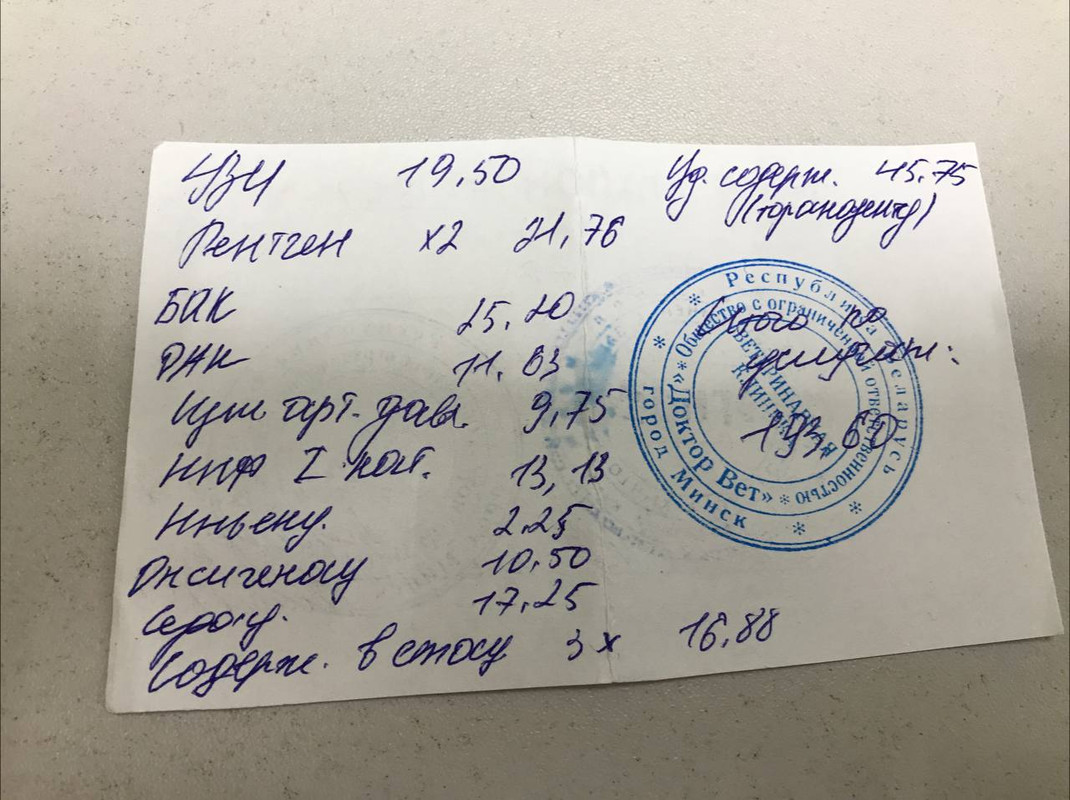 УЗИ 19,50
Рентген x2 21,76
БАК 25,20
РАК 11,63
Изм арт. давл. 9,75
Инф I кат. 13,13
Инъекц. 2,25
Оксигенац 10,50
17,25
Содерж. в стосу 3x 16,88
Уд. содерж. 45,75
Итого по
услугам:
193,60
Республика Беларусь
город Минск
Общество с ограниченной ответственностью
«Доктор Вет»
ВЕТЕРИНАРНАЯ
КЛИНИКА